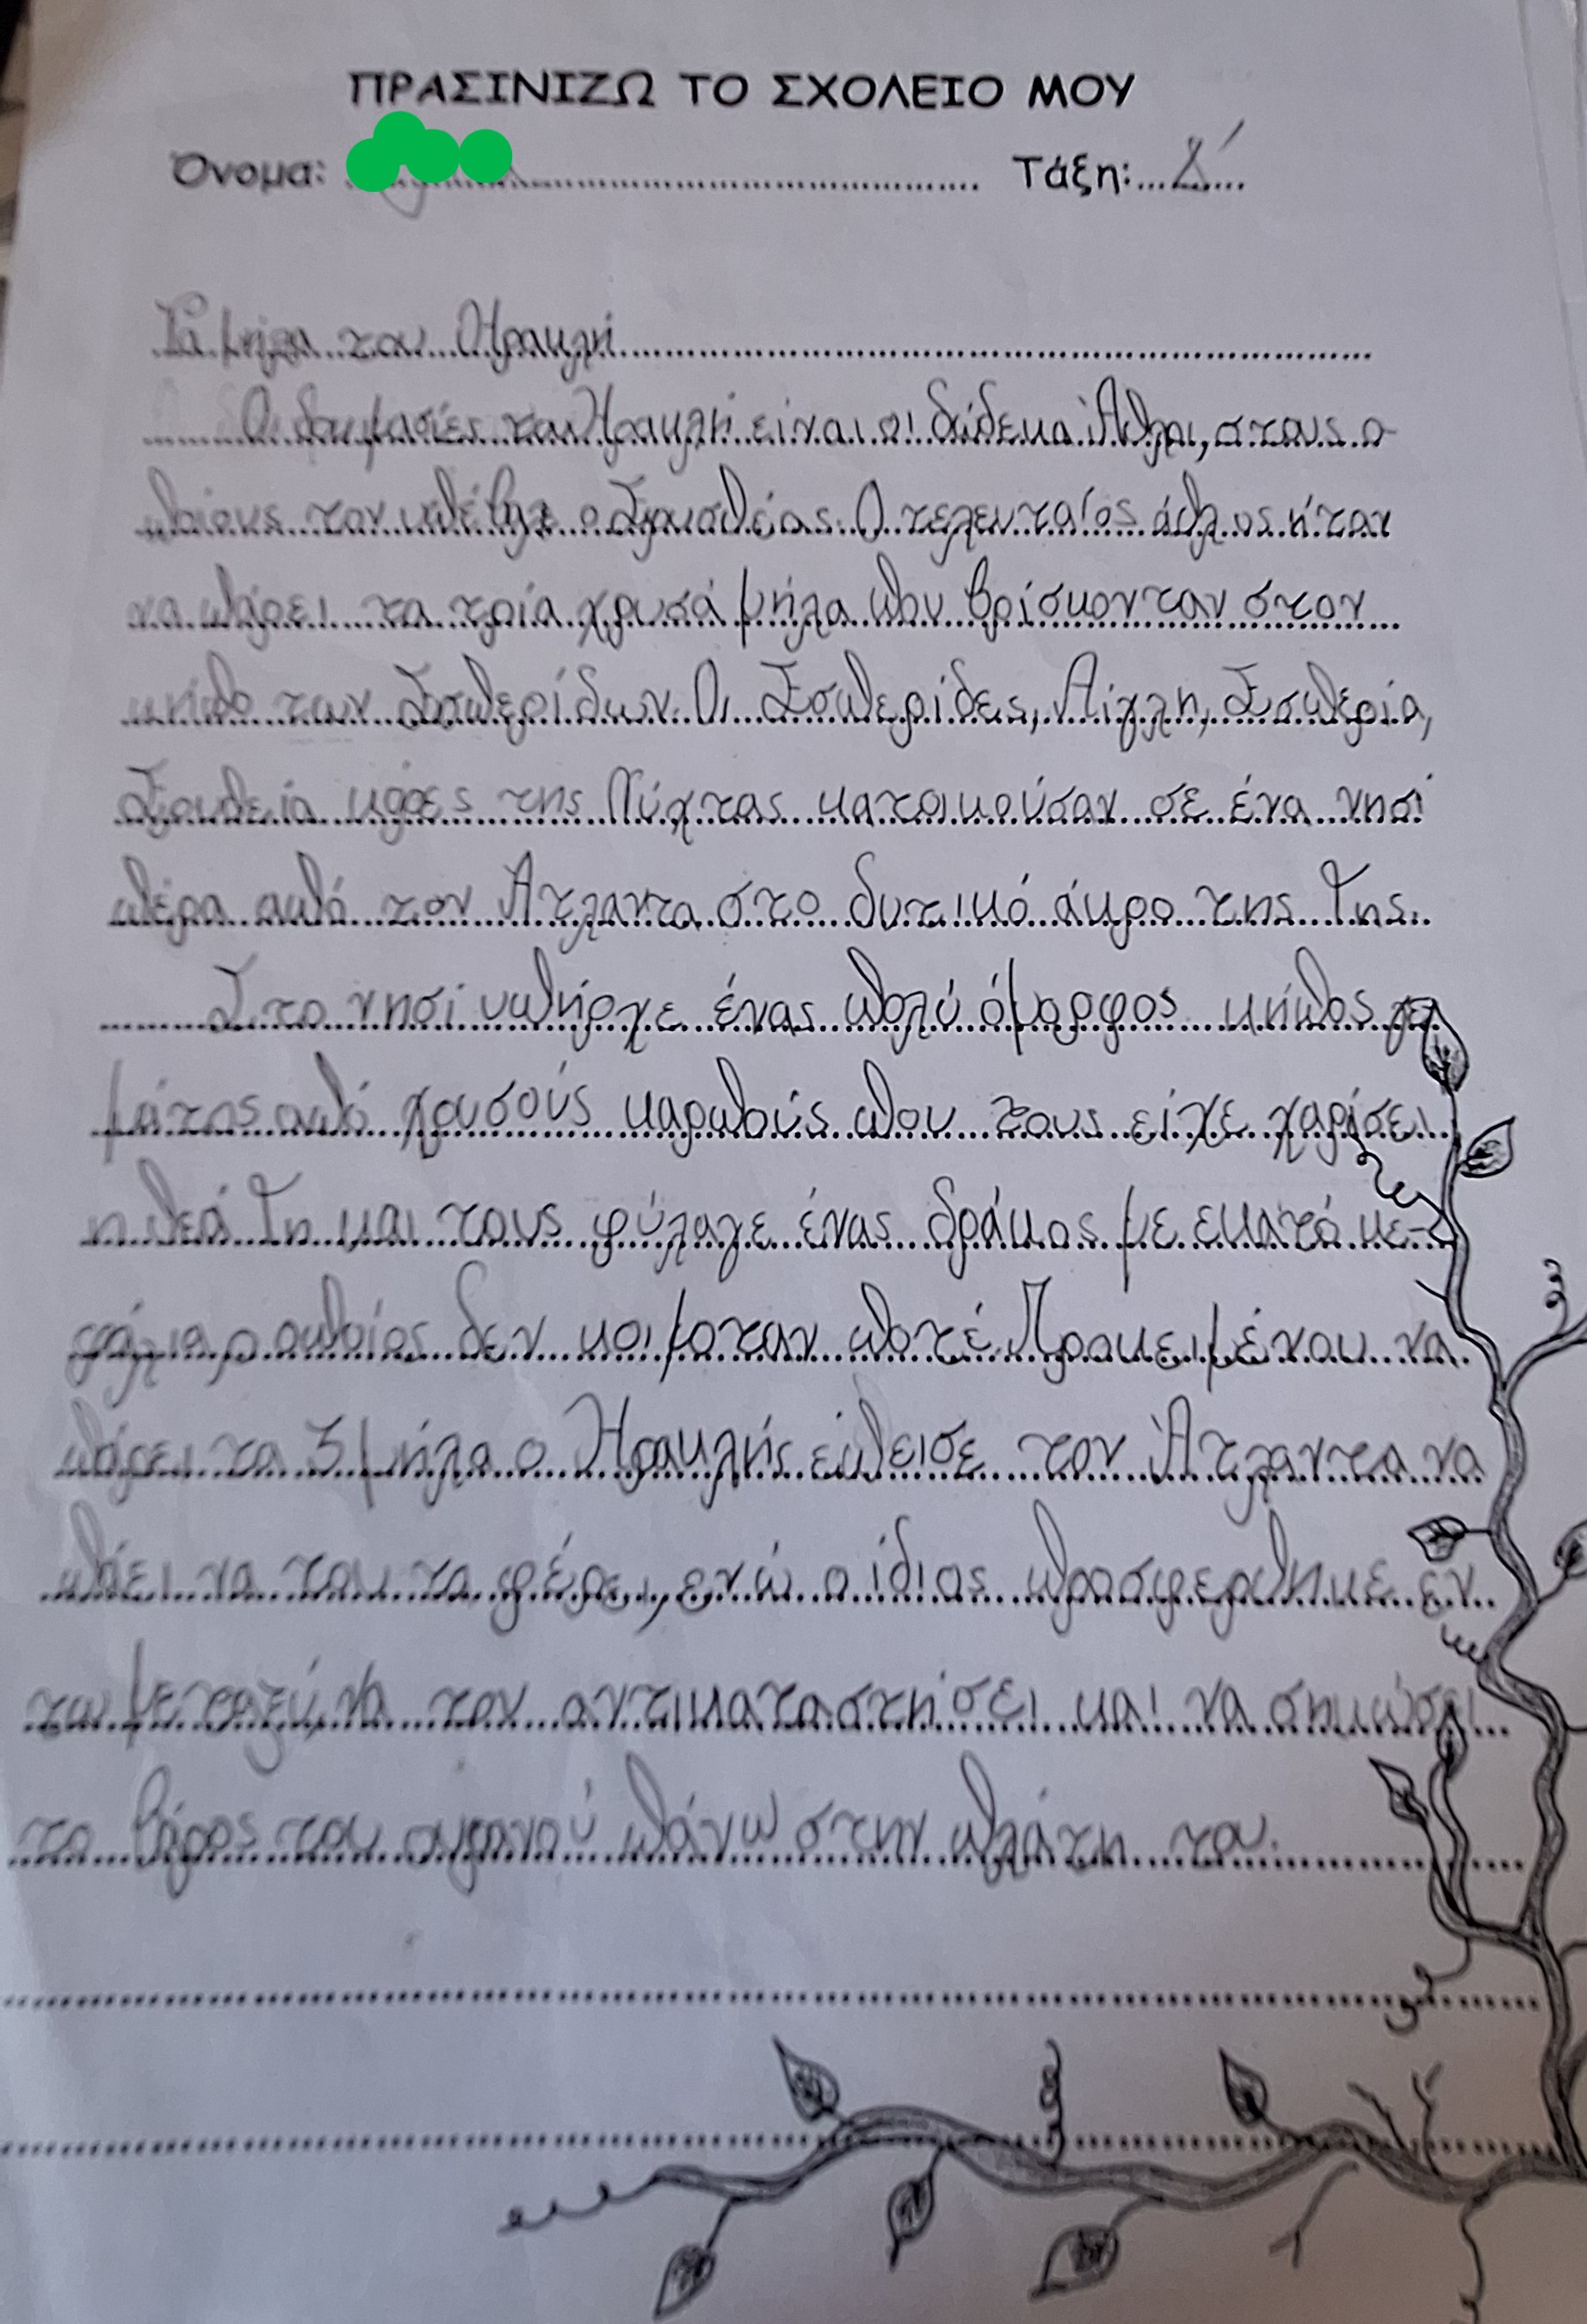 ΠΡΑΣΙΝΙΖΩ ΤΟ ΣΧΟΛΕΙΟ ΜΟΥ
Όνομα: Τάξη: Δ΄
Τα μήλα του Ηρακλή
Οι δοκιμασίες του Ηρακλή είναι οι δώδεκα Άθλοι, στους ο-
ποίους τον υπέβαλε ο Ευρυσθέας. Ο τελευταίος άθλος ήταν
να πάρει τα τρία χρυσά μήλα που βρίσκονταν στον
κήπο των Εσπερίδων. Οι Εσπερίδες, Αίγλη, Εσπερία,
Ερυθεία κόρες της Νύχτας κατοικούσαν σε ένα νησί
πέρα από τον Άτλαντα στο δυτικό άκρο της Γης.
Στο νησί υπήρχε ένας πολύ όμορφος κήπος γε
μάτος από χρυσούς καρπούς που τους είχε χαρίσει
η θεά Γη και τους φύλαγε ένας δράκος με εκατό κε-
φάλια, ο οποίος δεν κοιμόταν ποτέ. Προκειμένου να
πάρει τα 3 μήλα ο Ηρακλής έπεισε τον Άτλαντα να
πάει να του τα φέρει, ενώ ο ίδιος προσφέρθηκε εν
τω μεταξύ, να τον αντικαταστήσει και να σηκώσει
το βάρος του ουρανού πάνω στην πλάτη του.